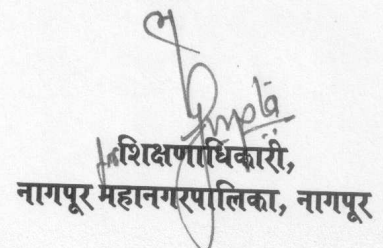 शिक्षणाधिकारी,
नागपूर महानगरपालिका, नागपूर